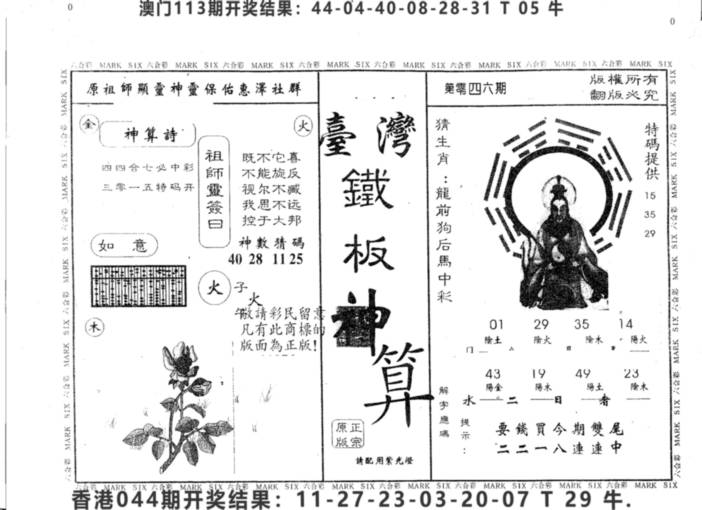 澳门113期开奖结果：44-04-40-08-28-31 T 05 牛
0
0
六合彩 MARK SIX 六合彩 MARK SIX 六合彩 MARK SIX 六合彩 MARK SIX 六合彩 MARK SIX 六合彩 MARK SIX
原祖師顯靈神靈保佑惠澤社群
金
神算詩
火
四四合七必中彩
三零一五特码开
祖師靈簽曰
既不它喜
不能旋反
视尔不臧
我思不远
控于大邦
神數猜碼
40 28 11 25
如意
火
子
火
午
敬請彩民留意
凡有此商標的
版面為正版！
木
臺灣
鐵板神算
正宗原版
請配用紫光燈
第零四六期
版權所有
翻版必究
猜生肖：龍前狗后馬中彩
特碼提供
15
35
29
01 29 35 14
陰土 陰火 陰木 陽火
43 19 49 23
陽金 陽木 陽土 陰木
水二日者
解字應碼
提示：
要錢買今期雙尾
二二一八連連中
香港044期开奖结果：11-27-23-03-20-07 T 29 牛.